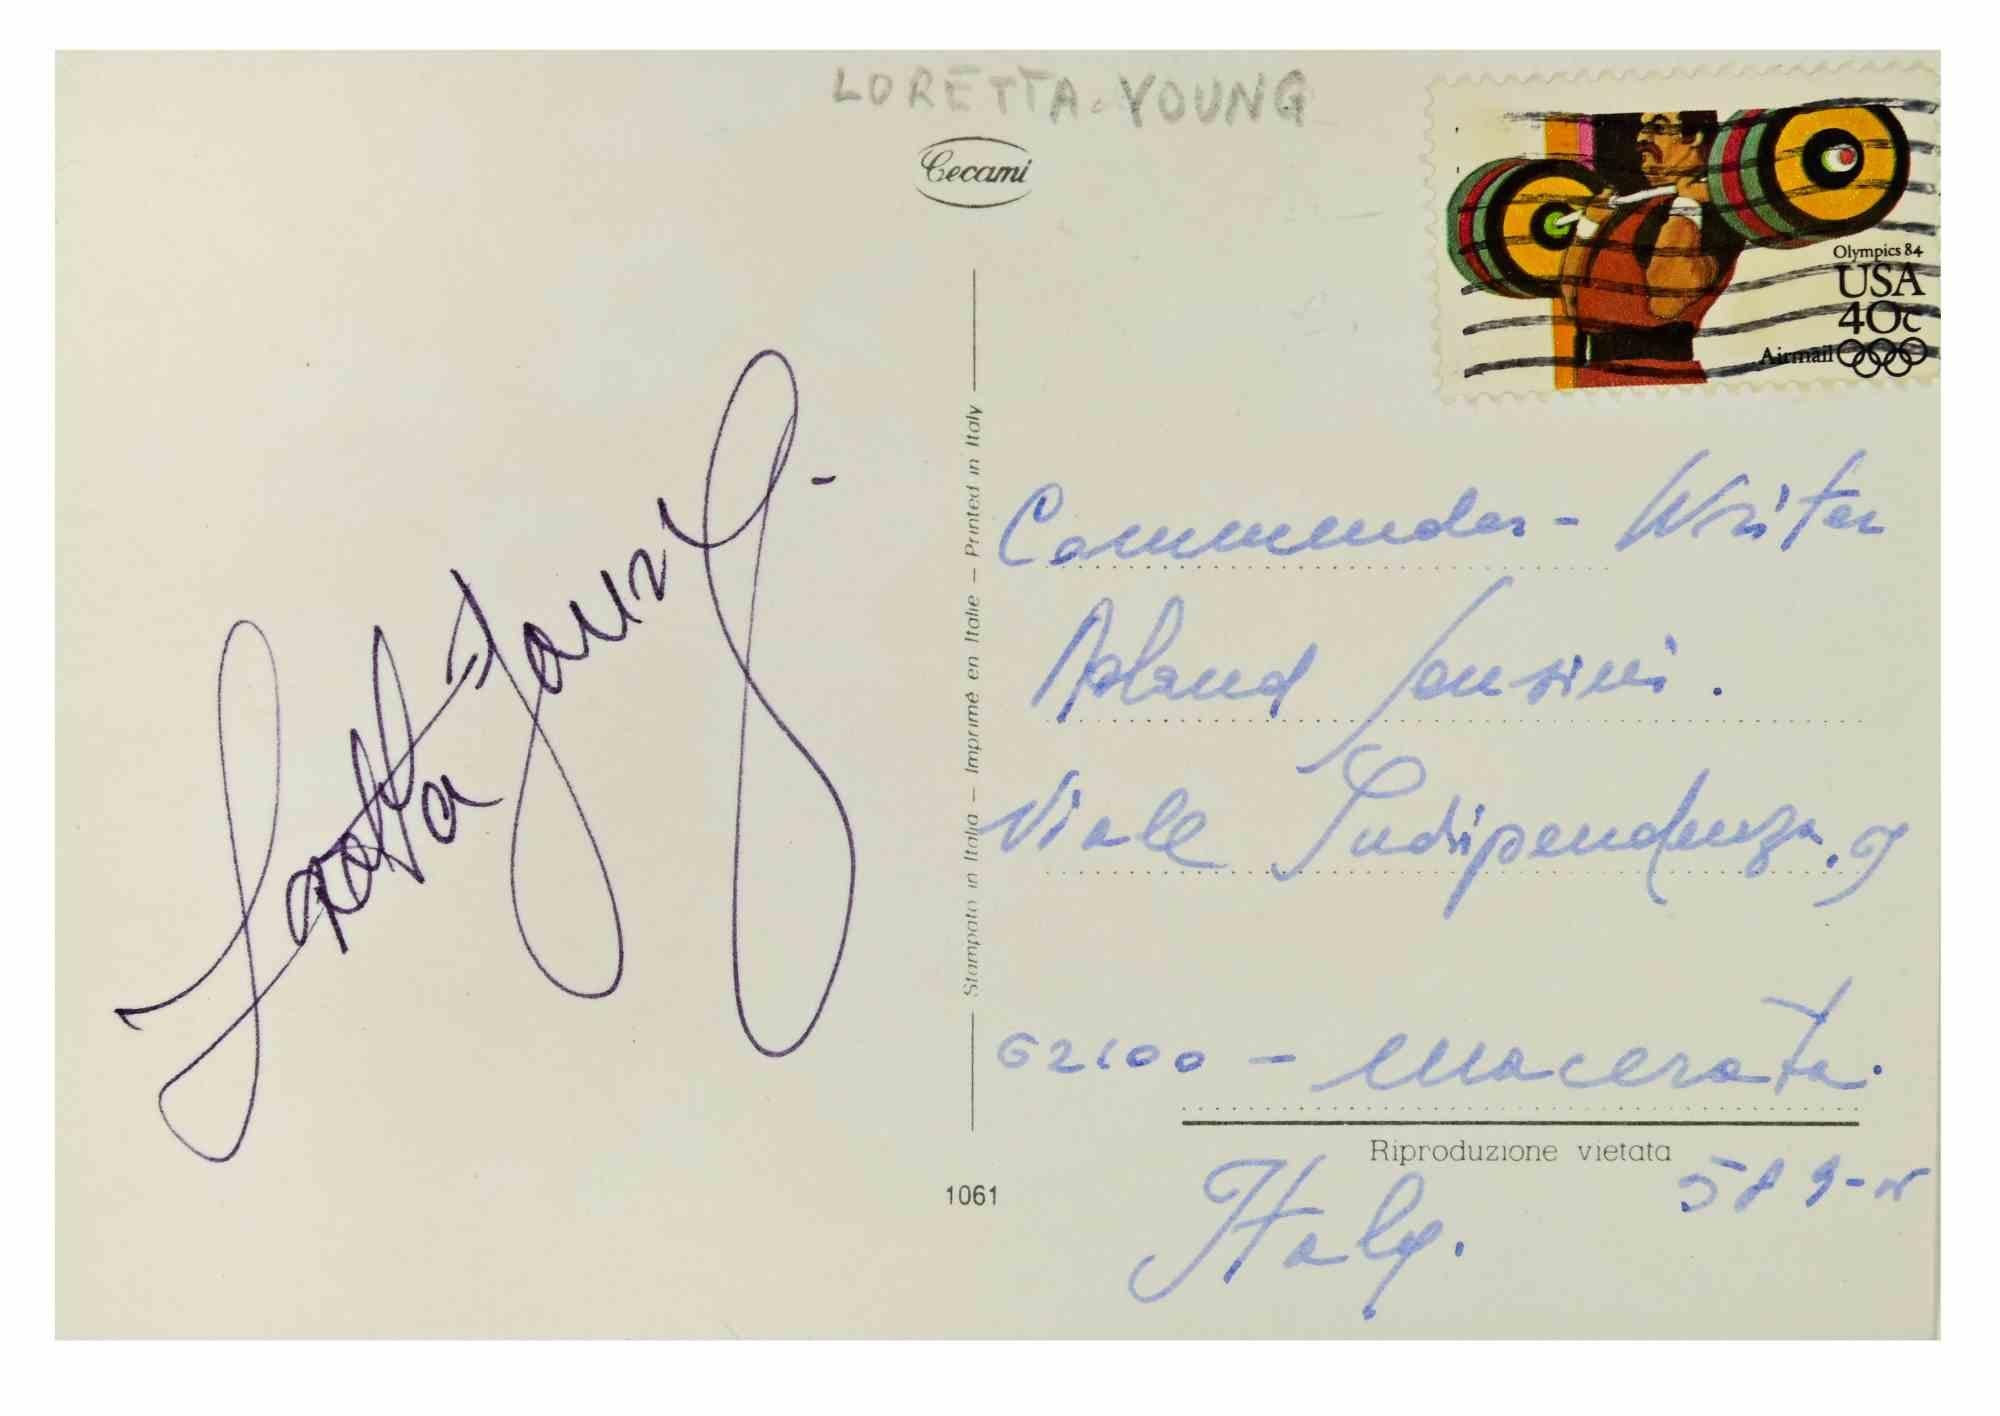 LORETTA. YOUNG
Cecami
Olympics 84
USA
40c
Airmail
Loretta Young.
Stampato in Italia – Imprimé en Italie – Printed in Italy
Commendar - Writer
Roland Sensini.
Viale Indipendenza, 9
62100 - Macerata.
Riproduzione vietata
1061
Italy.